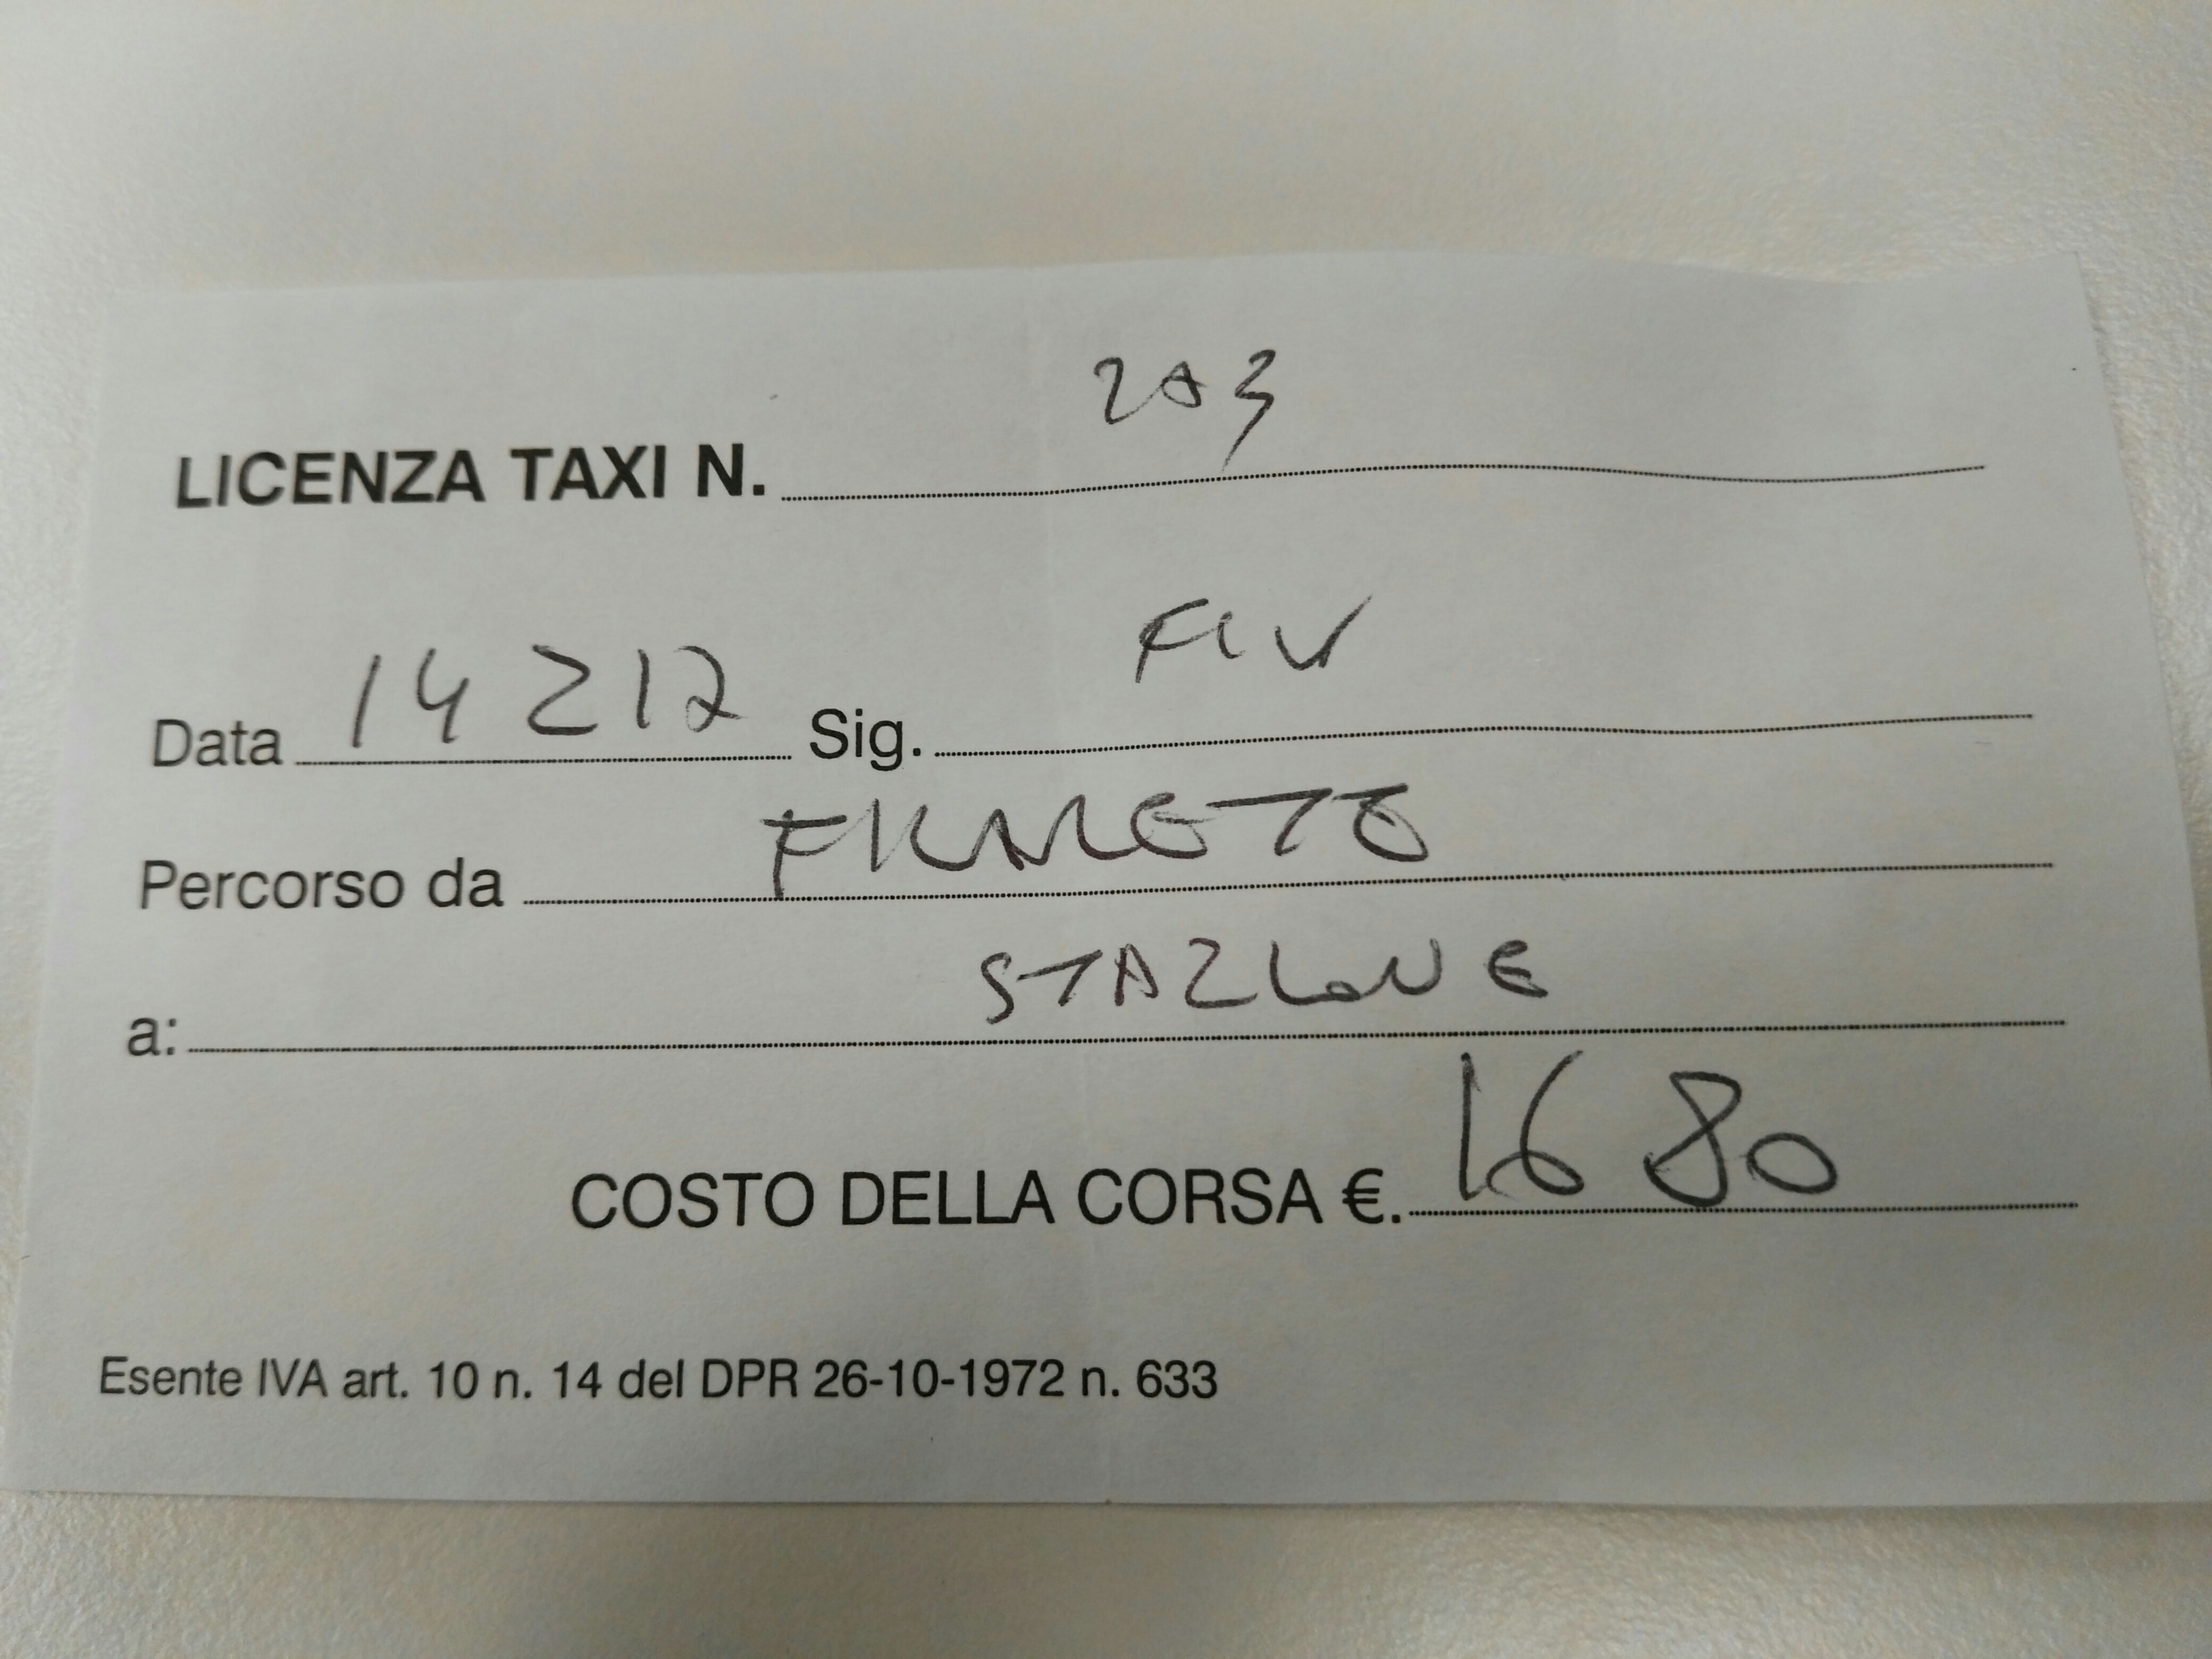 LICENZA TAXI N. 203
Data 14 2 17 Sig.
Percorso da
a: STAZIONE
COSTO DELLA CORSA €. 16 80
Esente IVA art. 10 n. 14 del DPR 26-10-1972 n. 633